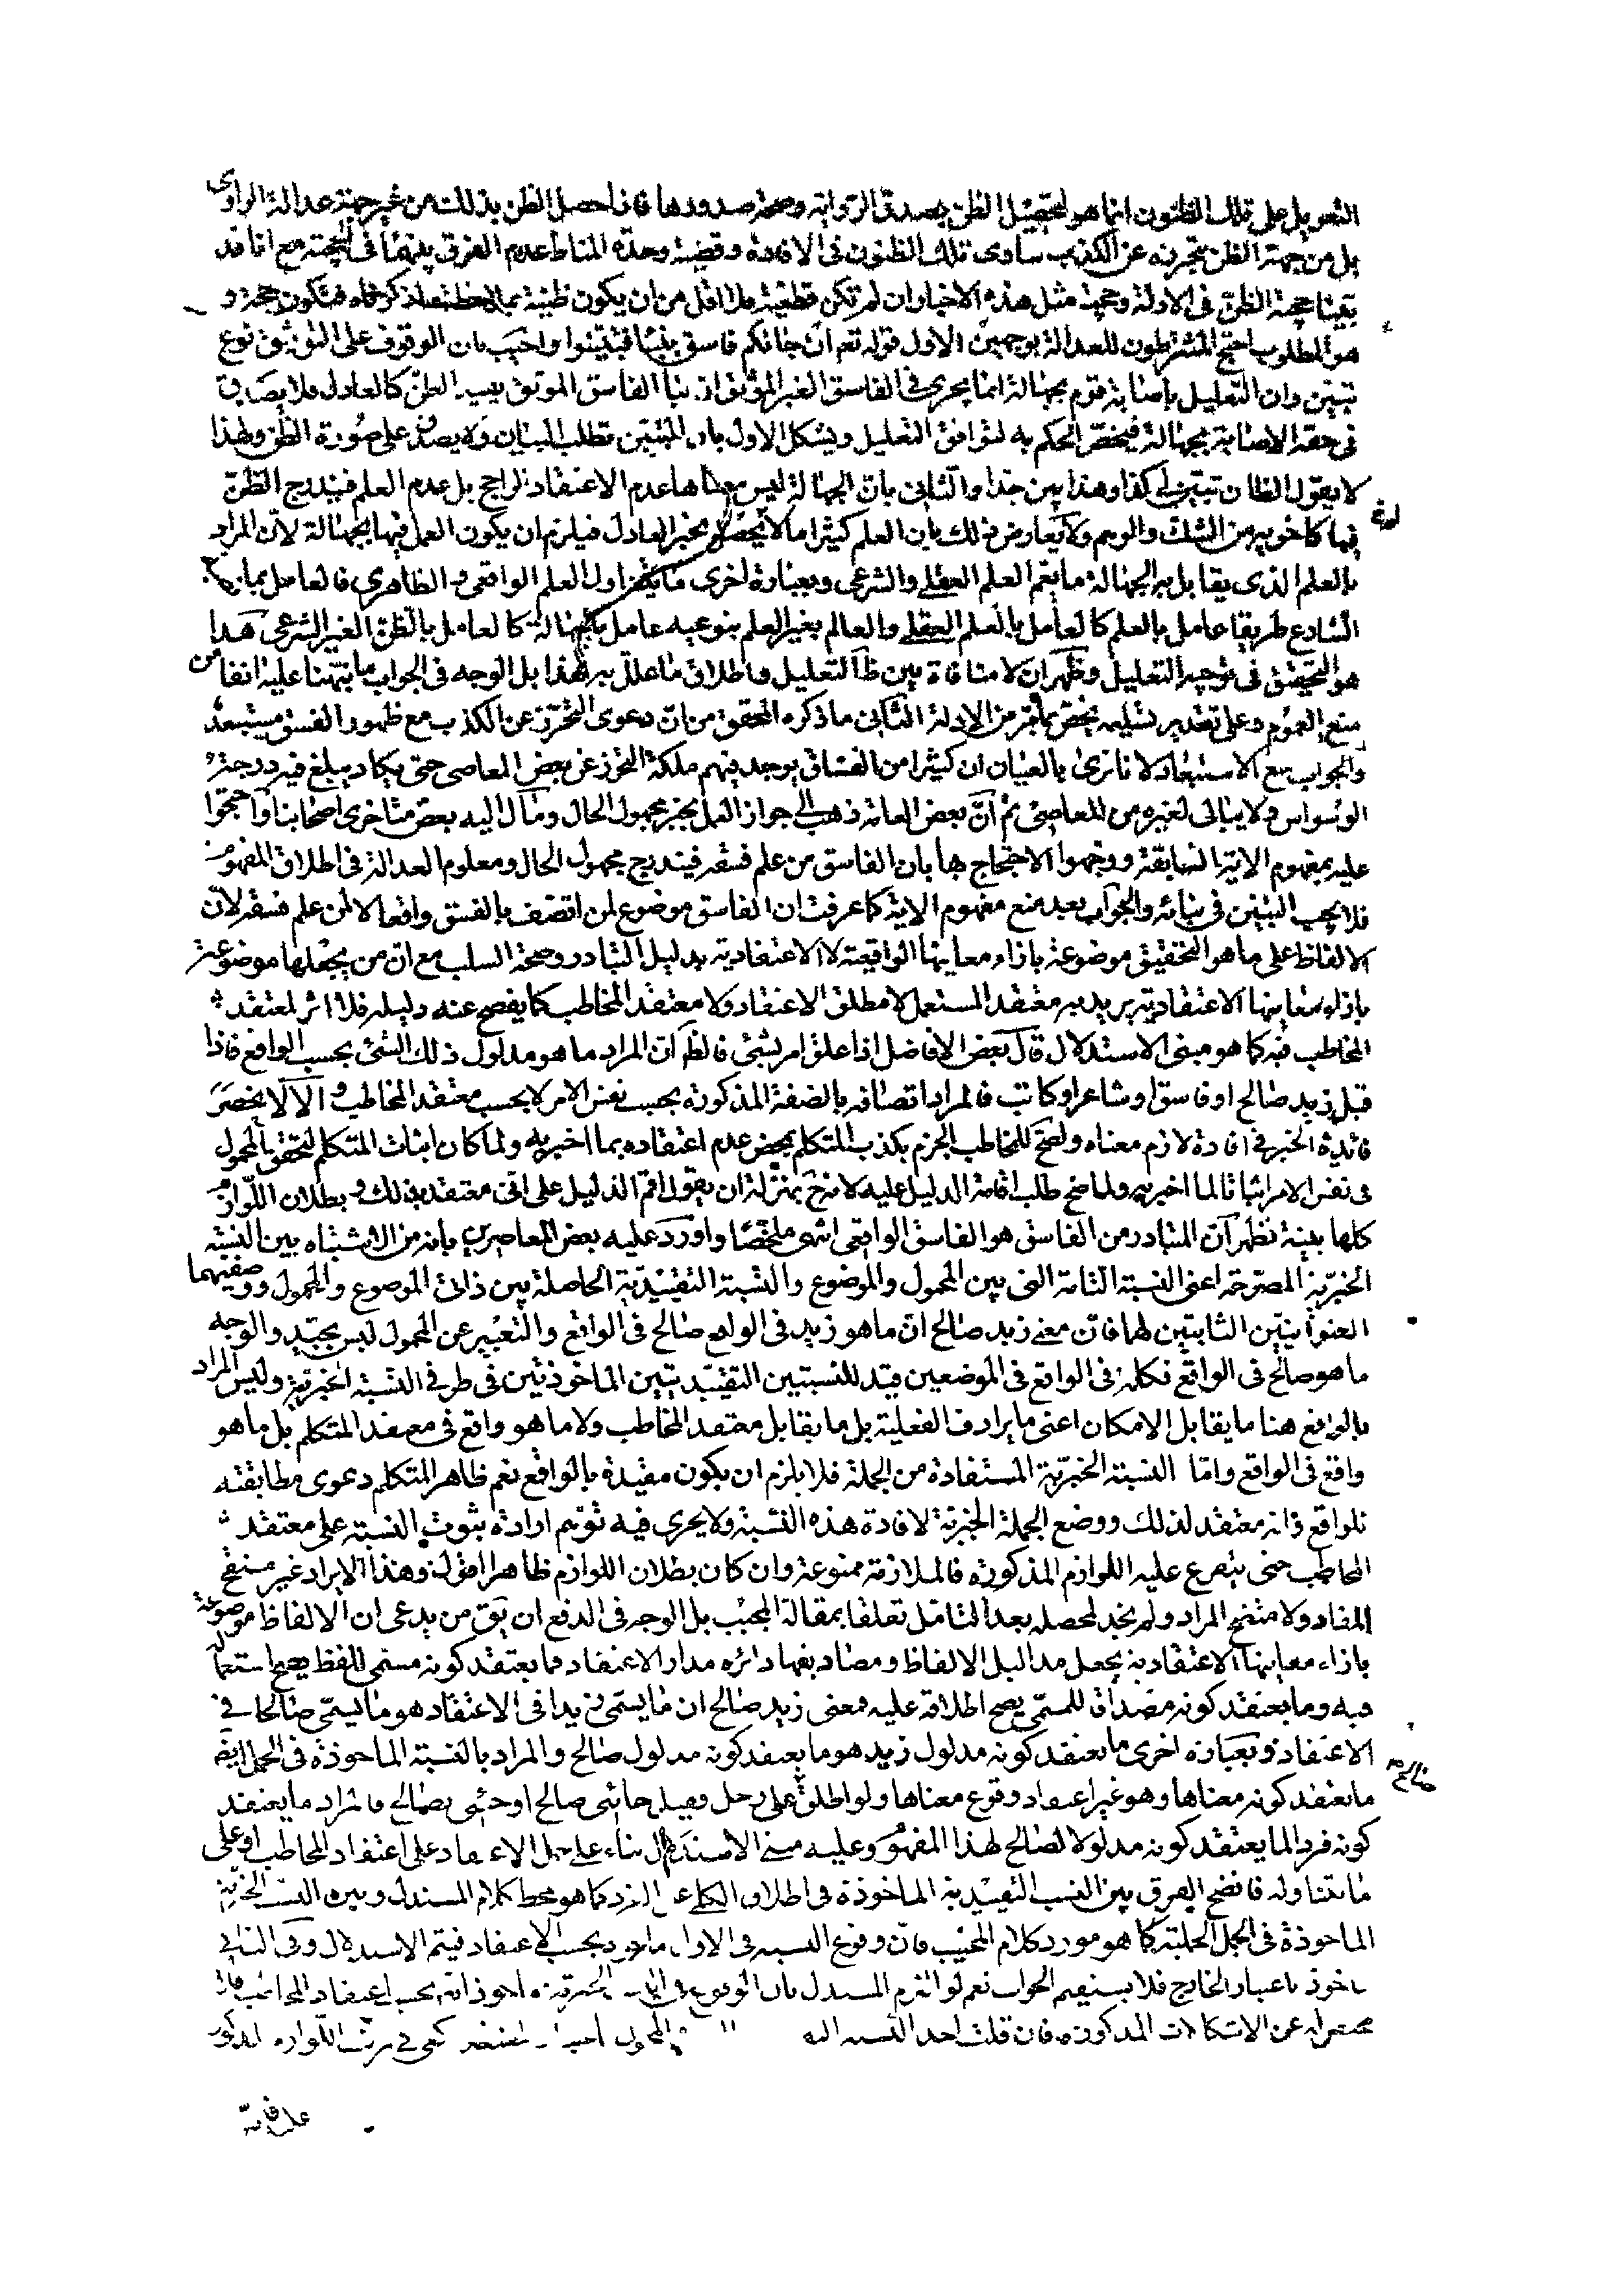 التعويل على تلك الظنون انما هو لتحصيل الظن بصدق الرواية وصحة صدورها فاذا حصل الظن بذلك من غير جهة عدالة الراوى
بل من جهة الظن بتحرزه عن الكذب ساوى تلك الظنون فى الافادة وقضية وحدة المناط عدم الفرق بينهما فى الحجية مع انا قد
بينا حجية الظن فى الادلة وحجية مثل هذه الاخبار ان لم تكن قطعية فلا اقل من ان يكون ظنية بملاحظة ما ذكرناه فتكون حجة و
هو المطلوب احتج المشترطون للعدالة بوجهين الاول قوله تع ان جائكم فاسق بنبا فتبينوا واجيب بان الوقوف على التوثيق نوع
تبين وان التعليل باصابة قوم بجهالة انما يجرى فى الفاسق الغير الموثق اذ نبا الفاسق الموثق يفيد الظن كالعادل فلا يصدق
فى حقه الاصابة بجهالة فيختص الحكم به لتوافق التعليل ويشكل الاول بان التبين تطلب البيان ولا يصدق على صورة الظن ولهذا
لا يقول الظان تبين لى كذا وهذا بين جدا والثانى بان الجهالة ليس معناها عدم الاعتقاد الراجح بل عدم العلم فيندرج الظن
فيها كاخويه من الشك والوهم ولا يعارض ذلك بان العلم كثيرا ما لا يحصل بخبر العادل فيلزم ان يكون العمل فيها بجهالة لان المراد
بالعلم الذى يقابل به الجهالة ما يعم العلم العقلى والشرعى وبعبارة اخرى ما يتناول العلم الواقعى والظاهرى فالعامل بما
الشارع طريقا عامل بالعلم كالعامل بالعلم العقلى والعالم بغير العلم بنوعيه عامل بالجهالة كالعامل بالظن الغير الشرعى هذا
هو التحقيق فى توجيه التعليل وظهر ان لا منافاة بين ظ التعليل واطلاق ما علل به هذا بل الوجه فى الجواب ما نبهنا عليه انفا من
منع العموم وعلى تقدير تسليمه يخص بما مر من الادلة الثانى ما ذكره المحقق من ان دعوى التحرز عن الكذب مع ظهور الفسق مستبعد
والجواب منع الاستبعاد لانا نرى بالعيان ان كثيرا من الفساق يوجد فيهم ملكة التحرز عن بعض المعاصى حتى يكاد يبلغ فيه درجة
الوسواس ولا يبالى لغيره من المعاصى ثم ان بعض العامة ذهب الى جواز العمل بخبر مجهول الحال ومال اليه بعض متاخرى اصحابنا واحتجوا
عليه بمفهوم الاية السابقة ووجهوا الاحتجاج بها بان الفاسق من علم فسقه فيندرج مجهول الحال ومعلوم العدالة فى اطلاق المفهوم
فلا يجب التبين فى نبائه والجواب بعد منع مفهوم الاية كما عرفت ان الفاسق موضوع لمن اتصف بالفسق واقعا لا لمن علم فسقه لان
الالفاظ على ما هو التحقيق موضوعة بازاء معانيها الواقعية لا الاعتقادية بدليل التبادر وصحة السلب مع ان من يجعلها موضوعة
بازاء معانيها الاعتقادية يريد به معتقد المستعمل لا مطلق الاعتقاد ولا معتقد المخاطب كما يفصح عنه دليله فلا اثر لمعتقد
المخاطب فيه كما هو مبنى الاستدلال قال بعض الافاضل اذا علق امر بشئ فالظ ان المراد ما هو مدلول ذلك الشئ بحسب الواقع فاذا
قيل زيد صالح او فاسق او شاعر او كاتب فالمراد اتصافه بالصفة المذكورة بحسب نفس الامر لا بحسب معتقد المخاطب والا لانحصر
فائدة الخبر فى افادة لازم معناه ولصح للمخاطب الجزم بكذب المتكلم بمحض عدم اعتقاده بما اخبر به ولما كان اثبات المتكلم لتحقق المحمول
فى نفس الامر اثباتا لما اخبر به ولما صح طلب اقامة الدليل عليه لانه ح بمنزلة ان يقول اقم الدليل على انى معتقد بذلك وبطلان اللوازم
كلها بينة فظهر ان المتبادر من الفاسق هو الفاسق الواقعى انتهى ملخصا واورد عليه بعض المعاصرين بانه من الاشتباه بين النسبة
الخبرية المصرحة اعنى النسبة التامة التى بين المحمول والموضوع والنسبة التقييدية الحاصلة بين ذاتى الموضوع والمحمول ووصفيهما
العنوانيتين الثابتين لهما فان معنى زيد صالح ان ما هو زيد فى الواقع صالح فى الواقع والتعبير عن المحمول ليس بجيد والوجه
ما هو صالح فى الواقع فكلمة فى الواقع فى الموضعين قيد للنسبتين التقييديتين الماخوذتين فى طرفى النسبة الخبرية وليس المراد
بالواقع هنا ما يقابل الامكان اعنى ما يرادف الفعلية بل ما يقابل معتقد المخاطب ولا ما هو واقع فى معتقد المتكلم بل ما هو
واقع فى الواقع واما النسبة الخبرية المستفادة من الجملة فلا يلزم ان يكون مقيدة بالواقع نعم ظاهر المتكلم دعوى مطابقته
للواقع وانه معتقد لذلك ووضع الجملة الخبرية لافادة هذه النسبة ولا يجرى فيه توهم ارادة ثبوت النسبة على معتقد
المخاطب حتى يتفرع عليه اللوازم المذكورة فالملازمة ممنوعة وان كان بطلان اللوازم ظاهرا اقول وهذا الايراد غير منقح
المفاد ولا متضح المراد ولم نجد لمحصله بعد التامل تعلقا بمقالة المجيب بل الوجه فى الدفع ان يق من يدعى ان الالفاظ موضوعة
بازاء معانيها الاعتقادية يجعل مداليل الالفاظ ومصاديقها دائرة مدار الاعتقاد فما يعتقد كونه مسمى للفظ يصح استعماله
فيه وما يعتقد كونه مصداقا للمسمى يصح اطلاقه عليه فمعنى زيد صالح ان ما يسمى زيدا فى الاعتقاد هو ما يسمى صالحا فى
الاعتقاد وبعبارة اخرى ما يعتقد كونه مدلول زيد هو ما يعتقد كونه مدلول صالح والمراد بالنسبة الماخوذة فى الجمل ايضا
صالح
ما يعتقد كونه معناها وهو غير اعتقاد وقوع معناها ولو اطلق على رجل وقيل جائنى صالح او جئنى بصالح فالمراد ما يعتقد
كونه فردا لما يعتقد كونه مدلولا لصالح لهذا المفهوم وعليه مبنى الاستدلال بناء على حمل الاعتقاد على اعتقاد المخاطب او على
ما يتناوله فاتضح الفرق بين النسب التقييدية الماخوذة فى اطلاق الكلى على الفرد كما هو محط كلام المستدل وبين النسب الخبرية
الماخوذة فى الجمل الحملية كما هو مورد كلام المجيب فان وقوع النسبة فى الاول ماخوذ بحسب الاعتقاد فيتم الاستدلال وفى الثانى
ماخوذ باعتبار الخارج فلا يستقيم الجواب نعم لو التزم المستدل بان الوقوع فى النسب الخبرية ماخوذ ايضا بحسب اعتقاد المخاطب
عن الاشكالات المذكورة فان قلت احد النسبة المحمول كفى فى ترتب اللوازم المذكورة